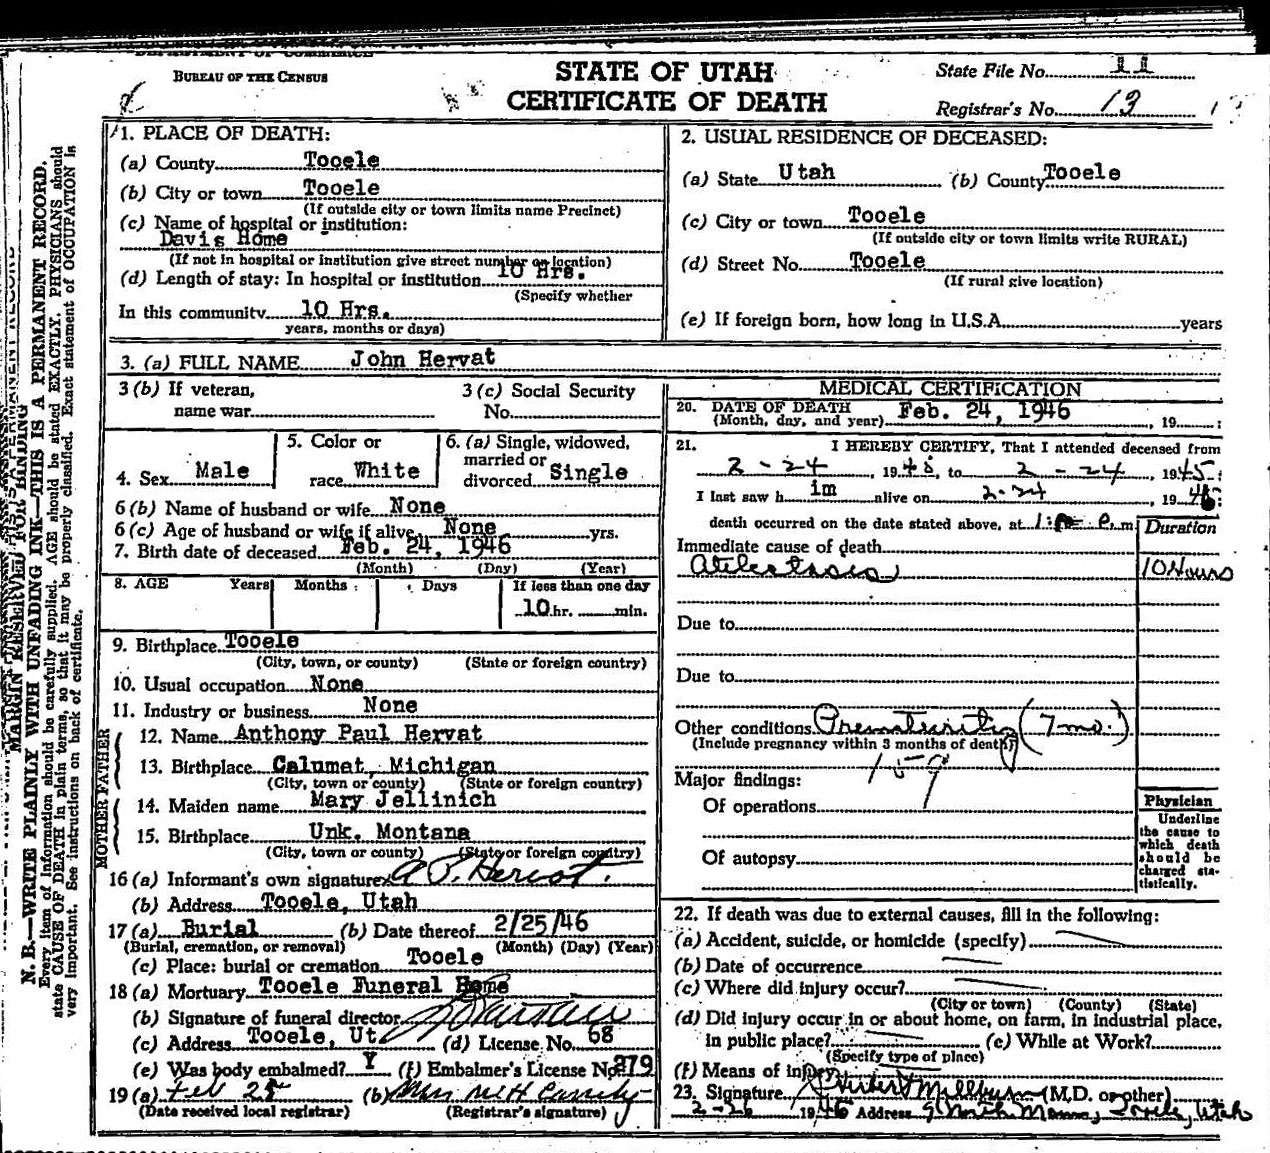 DEPARTMENT OF COMMERCE
BUREAU OF THE CENSUS
STATE OF UTAH
CERTIFICATE OF DEATH
State File No. 11
Registrar's No. 13
MARGIN RESERVED FOR BINDING
N. B.—WRITE PLAINLY WITH UNFADING INK—THIS IS A PERMANENT RECORD.
Every item of information should be carefully supplied. AGE should be stated EXACTLY. PHYSICIANS should
state CAUSE OF DEATH in plain terms, so that it may be properly classified. Exact statement of OCCUPATION is
very important. See instructions on back of certificate.
1. PLACE OF DEATH:
(a) County Tooele
(b) City or town Tooele
(If outside city or town limits name Precinct)
(c) Name of hospital or institution:
Davis Home
(If not in hospital or institution give street number or location)
(d) Length of stay: In hospital or institution 10 Hrs.
(Specify whether
In this community 10 Hrs.
years, months or days)
2. USUAL RESIDENCE OF DECEASED:
(a) State Utah (b) County Tooele
(c) City or town Tooele
(If outside city or town limits write RURAL)
(d) Street No. Tooele
(If rural give location)
(e) If foreign born, how long in U.S.A. years
3. (a) FULL NAME John Hervat
3 (b) If veteran,
name war
3 (c) Social Security
No.
4. Sex Male
5. Color or
race White
6. (a) Single, widowed,
married or
divorced Single
6 (b) Name of husband or wife None
6 (c) Age of husband or wife if alive None yrs.
7. Birth date of deceased Feb. 24, 1946
(Month) (Day) (Year)
8. AGE Years Months Days If less than one day
10 hr. min.
9. Birthplace Tooele
(City, town, or county) (State or foreign country)
10. Usual occupation None
11. Industry or business None
FATHER
12. Name Anthony Paul Hervat
13. Birthplace Calumet, Michigan
(City, town or county) (State or foreign country)
MOTHER
14. Maiden name Mary Jellinich
15. Birthplace Unk. Montana
(City, town or county) (State or foreign country)
16 (a) Informant's own signature A P. Hervat.
(b) Address Tooele, Utah
17 (a) Burial (b) Date thereof 2/25/46
(Burial, cremation, or removal) (Month) (Day) (Year)
(c) Place: burial or cremation Tooele
18 (a) Mortuary Tooele Funeral Home
(b) Signature of funeral director
(c) Address Tooele, Ut. (d) License No. 68
(e) Was body embalmed? Y (f) Embalmer's License No. 279
19 (a) Feb 25 (b) Mrs
(Date received local registrar) (Registrar's signature)
MEDICAL CERTIFICATION
20. DATE OF DEATH Feb. 24, 1946, 19 ;
(Month, day, and year)
21. I HEREBY CERTIFY, That I attended deceased from
2 - 24 1945, to 2 - 24 1945;
I last saw h im alive on 2-24 19
death occurred on the date stated above, at 1: P. m. Duration
Immediate cause of death
Atelectasis 10 Hours
Due to
Due to
Other conditions Prematurity (7 mo.)
(Include pregnancy within 3 months of death)
159
Major findings:
Of operations
Of autopsy
Physician
Underline
the cause to
which death
should be
charged sta-
tistically.
22. If death was due to external causes, fill in the following:
(a) Accident, suicide, or homicide (specify)
(b) Date of occurrence
(c) Where did injury occur?
(City or town) (County) (State)
(d) Did injury occur in or about home, on farm, in industrial place,
in public place? (e) While at Work?
(Specify type of place)
(f) Means of injury
23. Signature Millburn (M.D. or other)
2-26 1946 Address 9 North Main, Tooele, Utah